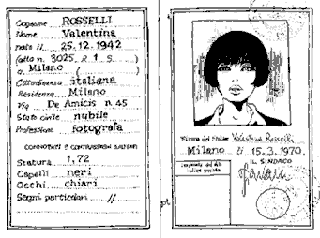 Cognome ROSSELLI
Nome Valentina
nato il 25.12.1942
(atto n. 3025. P. 1 S. )
a Milano ( )
Cittadinanza italiana
Residenza Milano
Via De Amicis n.45
Stato civile nubile
Professione fotografa
CONNOTATI E CONTRASSEGNI SALIENTI
Statura 1,72
Capelli neri
Occhi chiari
Segni particolari //
Firma del titolare Valentina Rosselli
Milano li 15.3.1970.
IL SINDACO